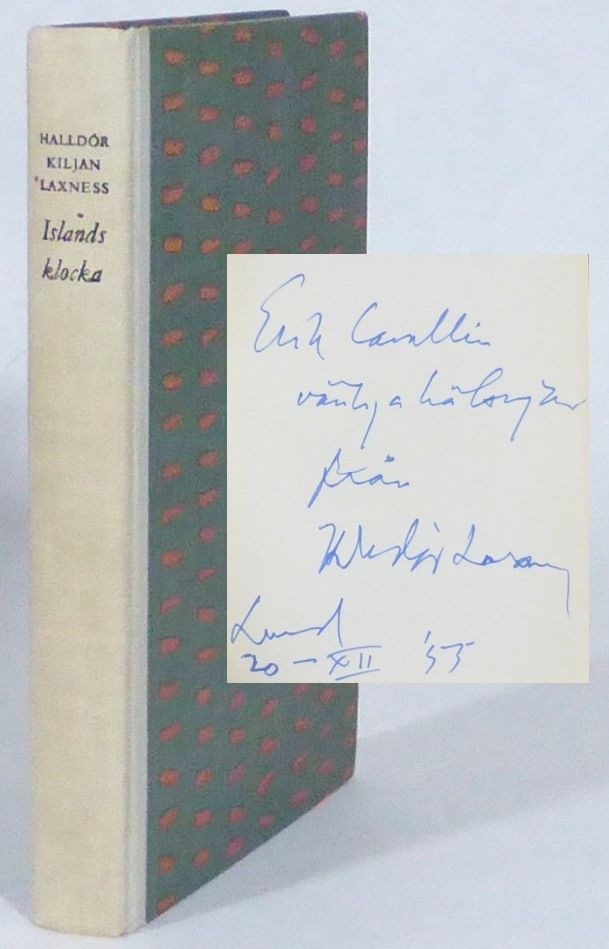 HALLDÓR
KILJAN
LAXNESS
Islands
klocka
Erik Cavallin
vänliga hälsningar
från
Halldór Laxness
Lund
20 – XII '55